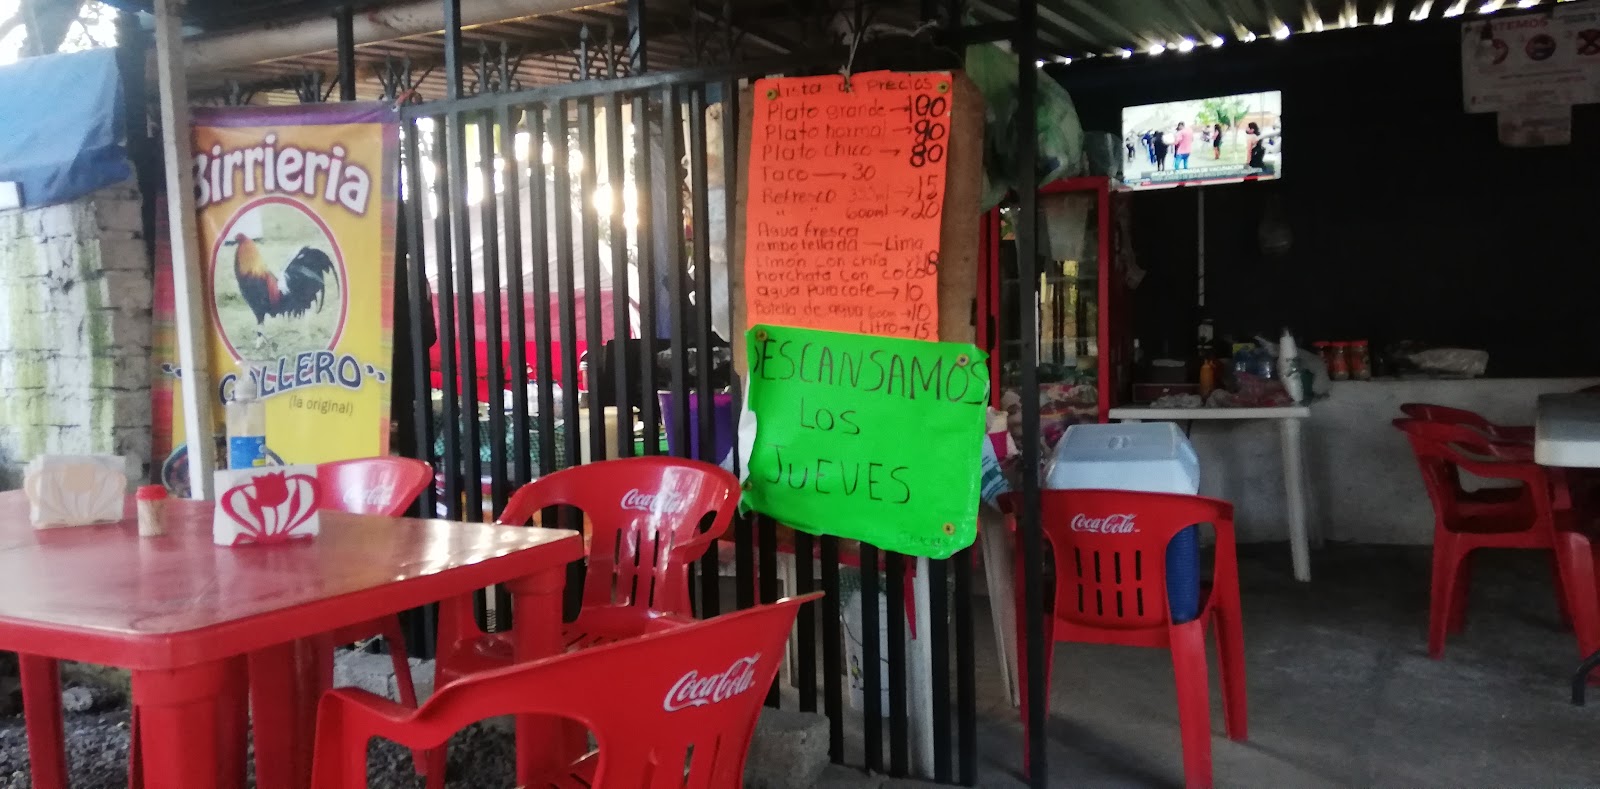 Birrieria
"GALLERO"
(la original)
Lista de precios
Plato grande → 100
Plato normal → 90
Plato chico → 80
Taco → 30
Refresco 355ml → 15
" " 600ml → 20
Agua fresca
embotellada — Lima
Limon con chía y 18
horchata con coco
agua para cafe → 10
Botella de agua 600m → 10
Litro → 15
DESCANSAMOS
LOS
JUEVES
Gracias
Coca-Cola
Coca-Cola
Coca-Cola
Coca-Cola